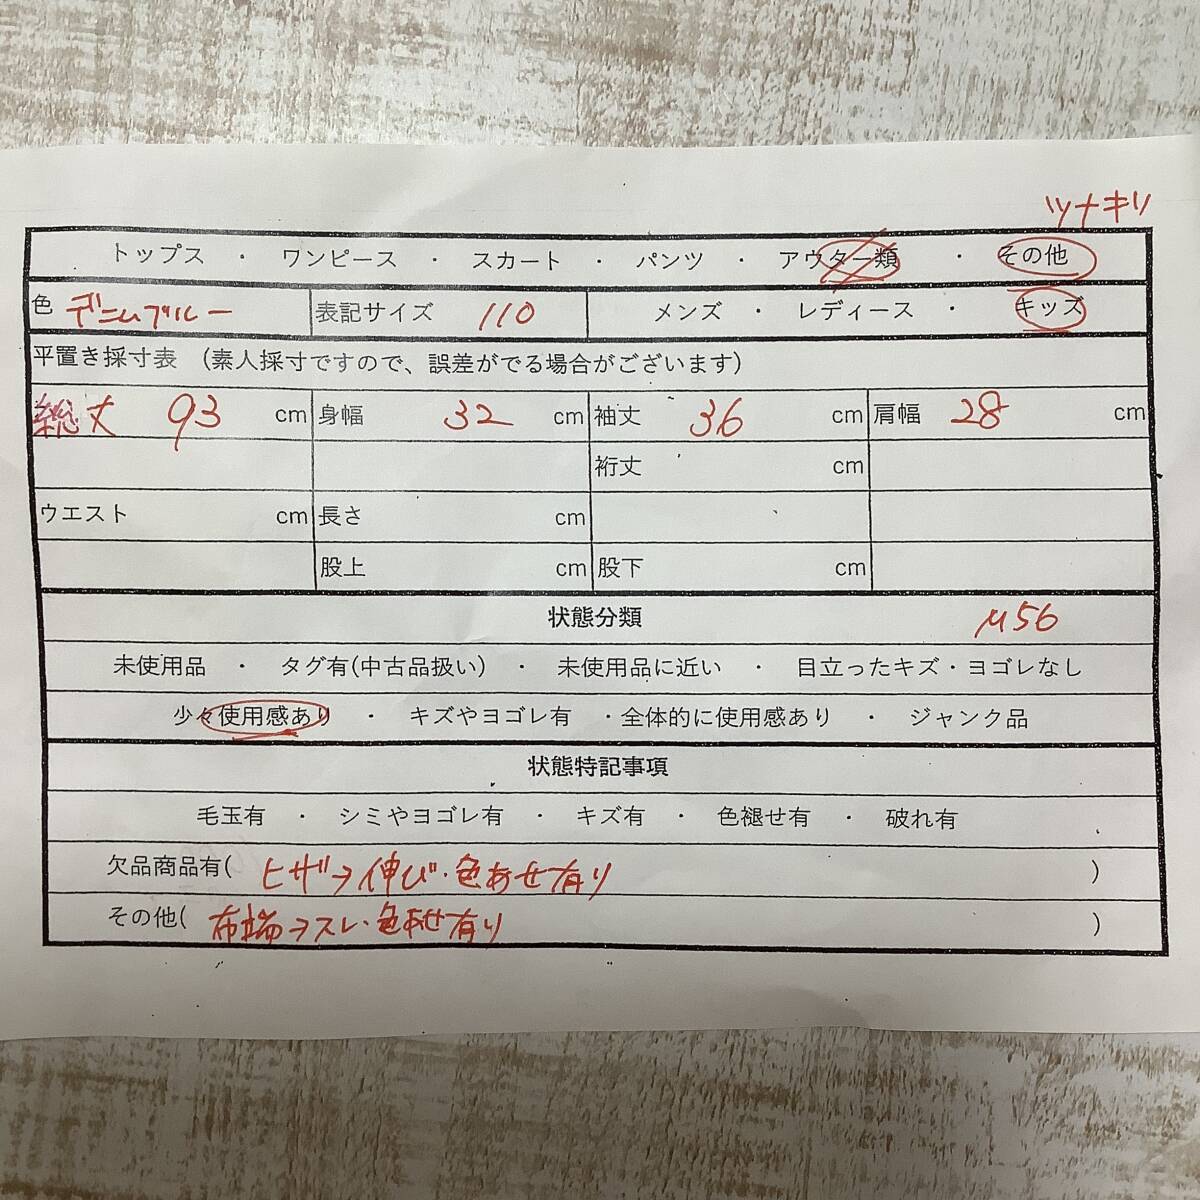 ツナキリ
トップス ・ ワンピース ・ スカート ・ パンツ ・ アウター類 ・ その他
色 デニムブルー 表記サイズ 110 メンズ ・ レディース ・ キッズ
平置き採寸表 (素人採寸ですので、誤差がでる場合がございます)
総丈 93 cm 身幅 32 cm 袖丈 36 cm 肩幅 28 cm
裄丈 cm
ウエスト cm 長さ cm
股上 cm 股下 cm
状態分類 μ56
未使用品 ・ タグ有(中古品扱い) ・ 未使用品に近い ・ 目立ったキズ・ヨゴレなし
少々使用感あり ・ キズやヨゴレ有 ・全体的に使用感あり ・ ジャンク品
状態特記事項
毛玉有 ・ シミやヨゴレ有 ・ キズ有 ・ 色褪せ有 ・ 破れ有
欠品商品有( ヒザ→伸び・色あせ有り )
その他( 布端→スレ・色あせ有り )